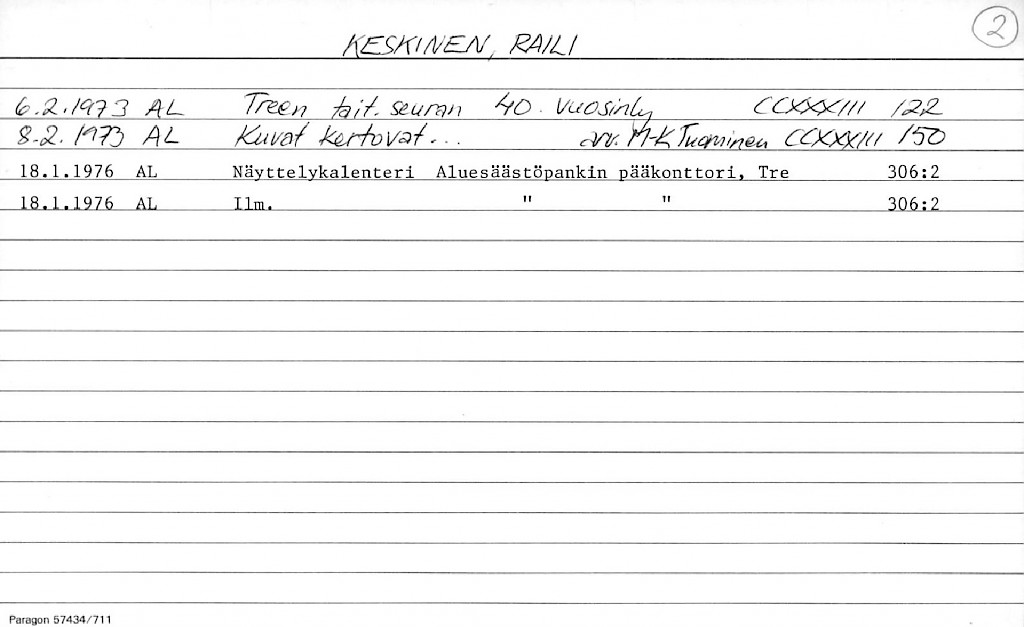 2
KESKINEN, RAILI
6.2.1973 AL Treen tait. seuran 40. vuosinly CCXXXIII 122
8.2.1973 AL Kuvat kertovat... arv. M-K Tuominen CCXXXIII 150
18.1.1976 AL Näyttelykalenteri Aluesäästöpankin pääkonttori, Tre 306:2
18.1.1976 AL Ilm. " " 306:2
Paragon 57434/711